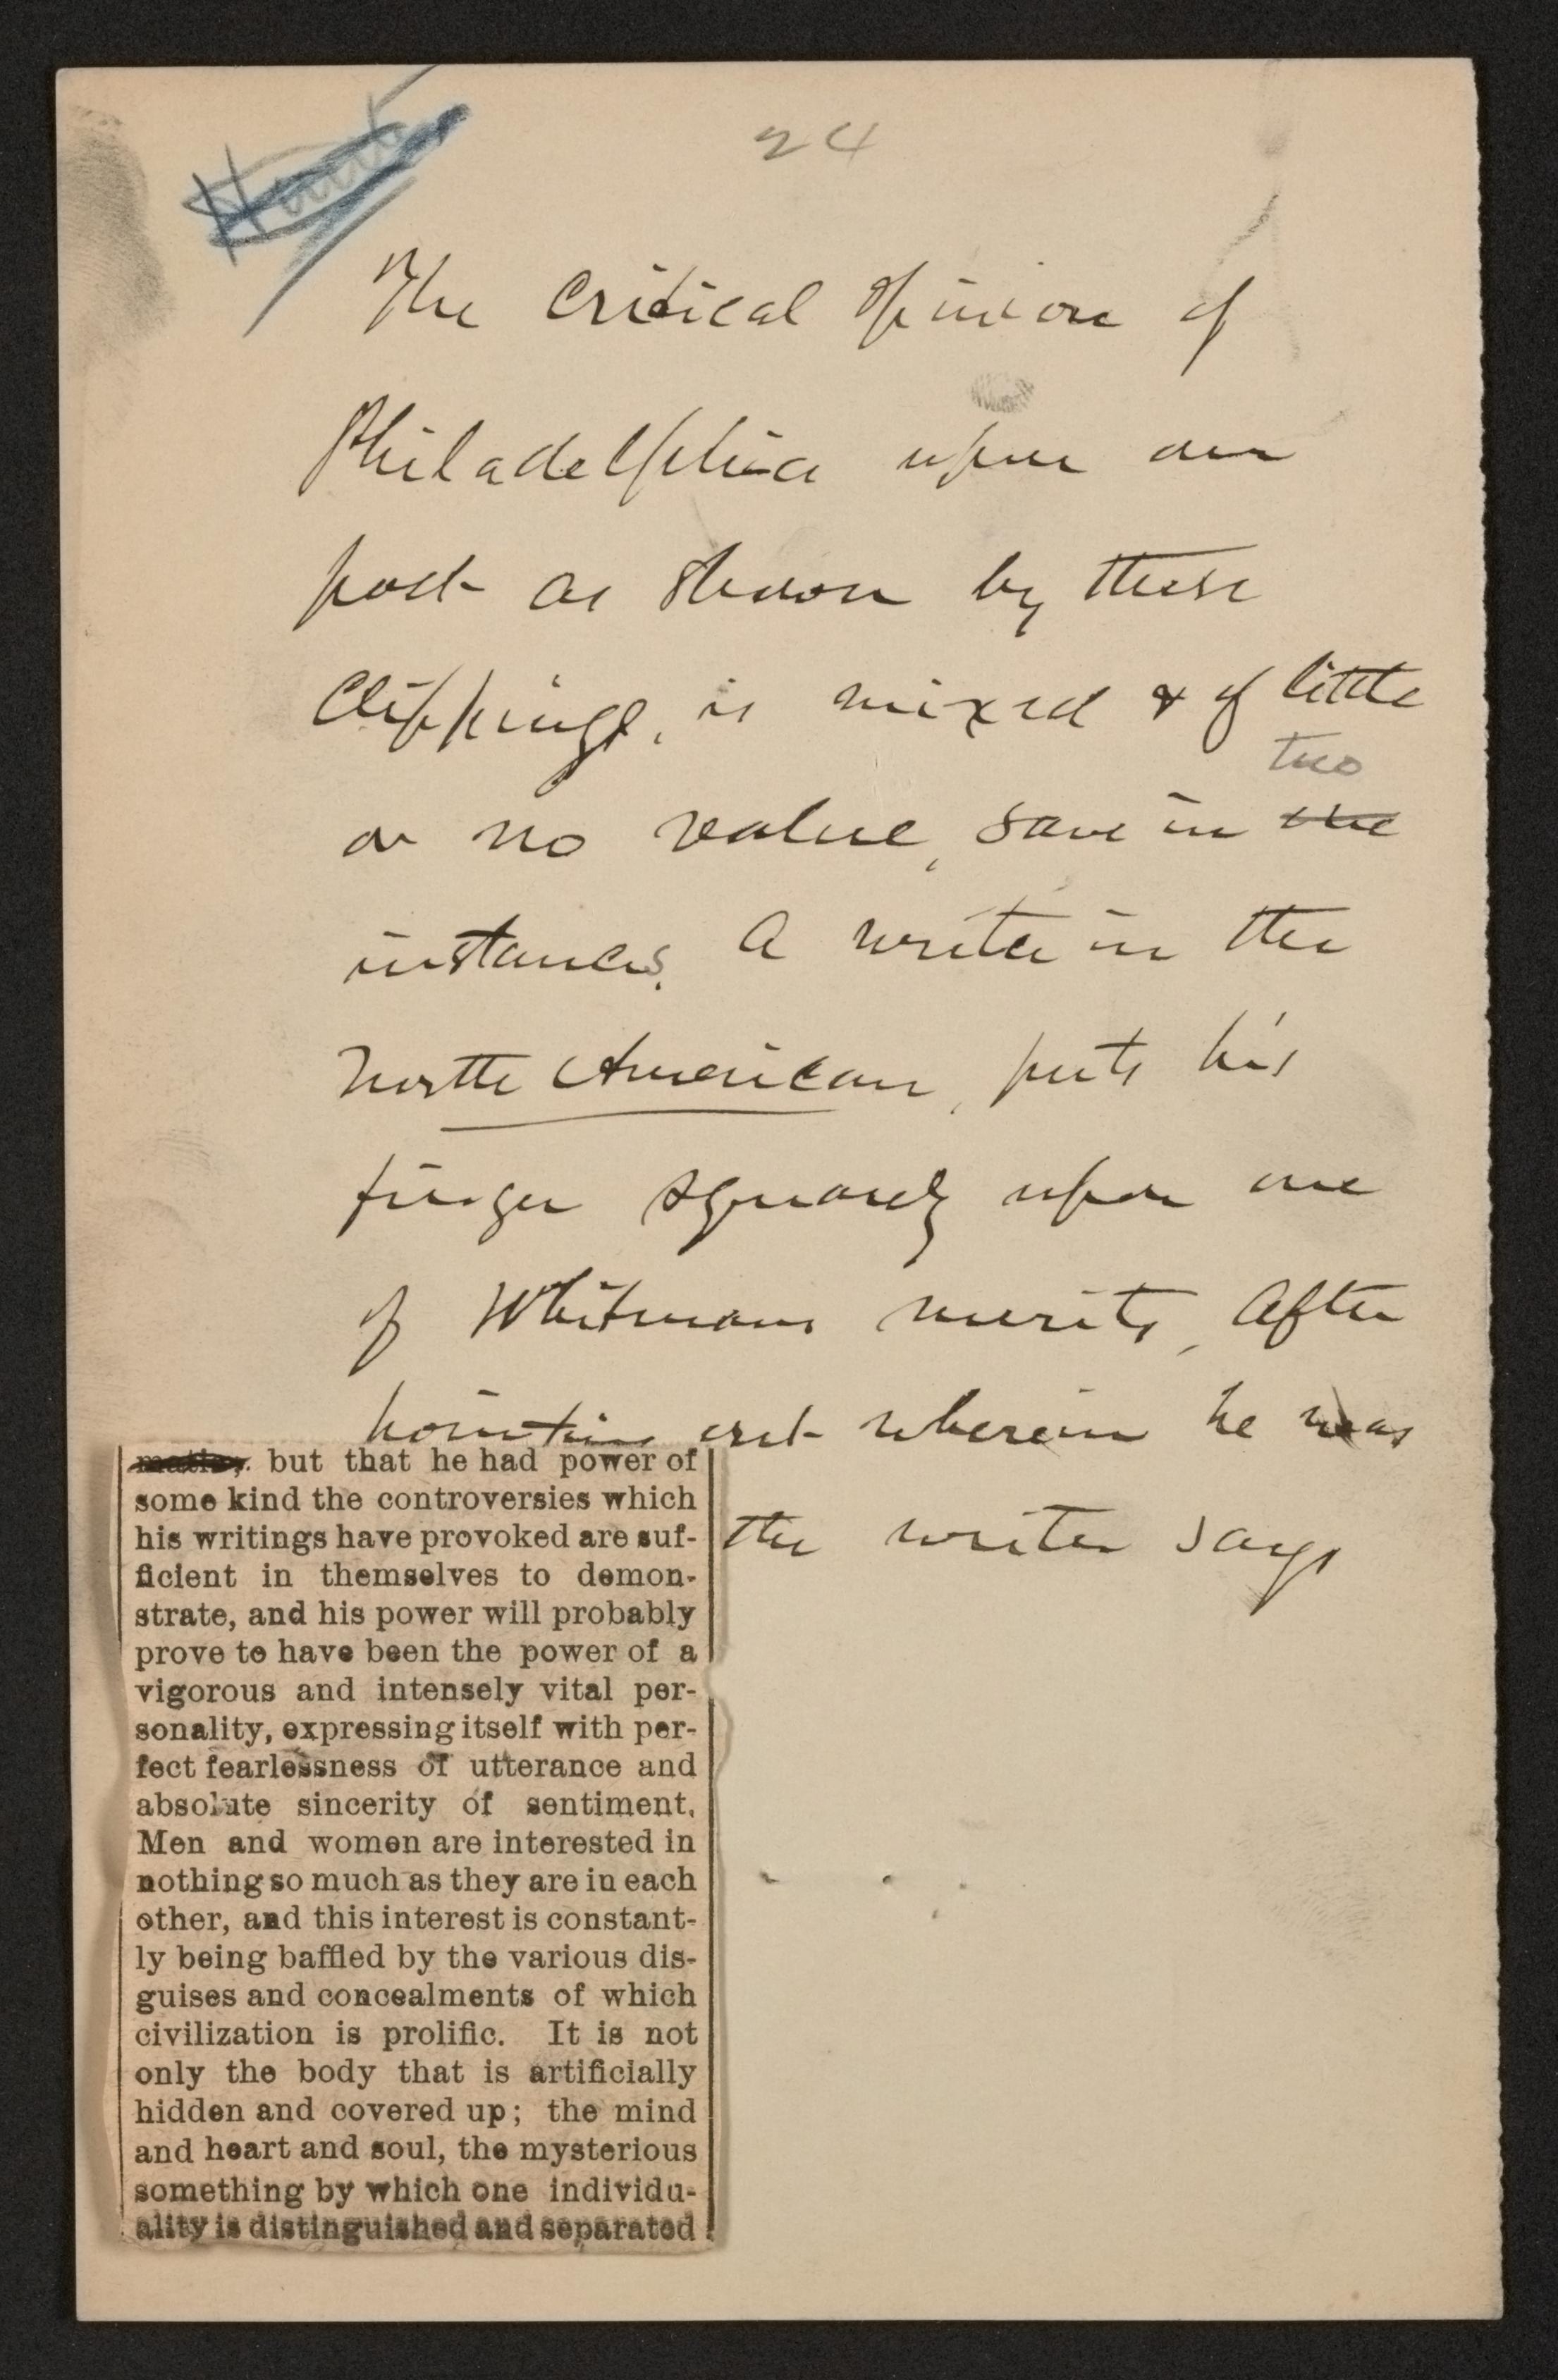 24
The Critical Opinion of
Philadelphia upon our
poet as shown by these
Clippings, is mixed & of little
two
or no value, save in one
instances. A writer in the
North American, puts his
finger squarely upon one
of Whitmans merits, After
pointing out wherein he was
the writer says
but that he had power of
some kind the controversies which
his writings have provoked are suf-
ficient in themselves to demon-
strate, and his power will probably
prove to have been the power of a
vigorous and intensely vital per-
sonality, expressing itself with per-
fect fearlessness of utterance and
absolute sincerity of sentiment.
Men and women are interested in
nothing so much as they are in each
other, and this interest is constant-
ly being baffled by the various dis-
guises and concealments of which
civilization is prolific. It is not
only the body that is artificially
hidden and covered up; the mind
and heart and soul, the mysterious
something by which one individu-
ality is distinguished and separated